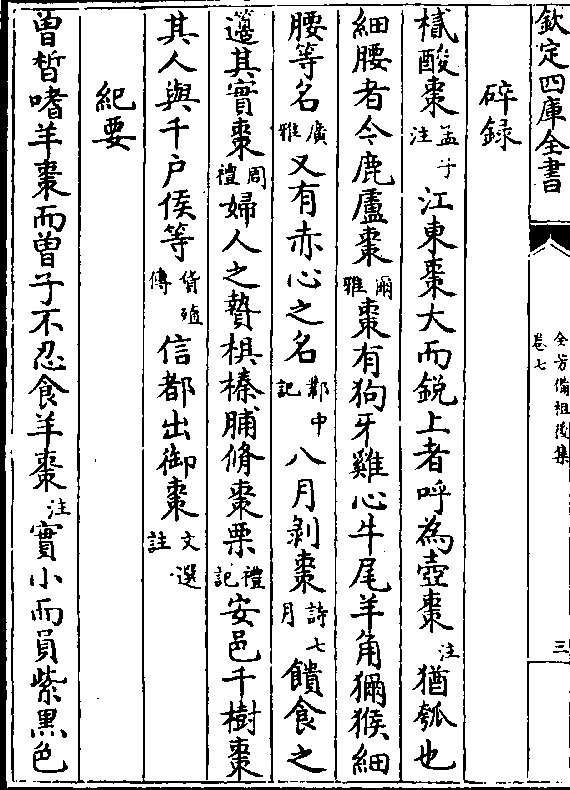 欽定四庫全書
全芳備祖後集
卷七
三
碎録
樲酸棗孟子注江東棗大而鋭上者呼為壺棗注猶瓠也
細腰者今鹿盧棗爾雅棗有狗牙雞心牛尾羊角獮猴細
腰等名廣雅又有赤心之名鄴中記八月剥棗詩七月饋食之
籩其實棗周禮婦人之贄椇榛脯脩棗栗禮記安邑千樹棗
其人與千户侯等貨殖傳信都出御棗文選註
紀要
曾晳嗜羊棗而曾子不忍食羊棗注實小而員紫黒色